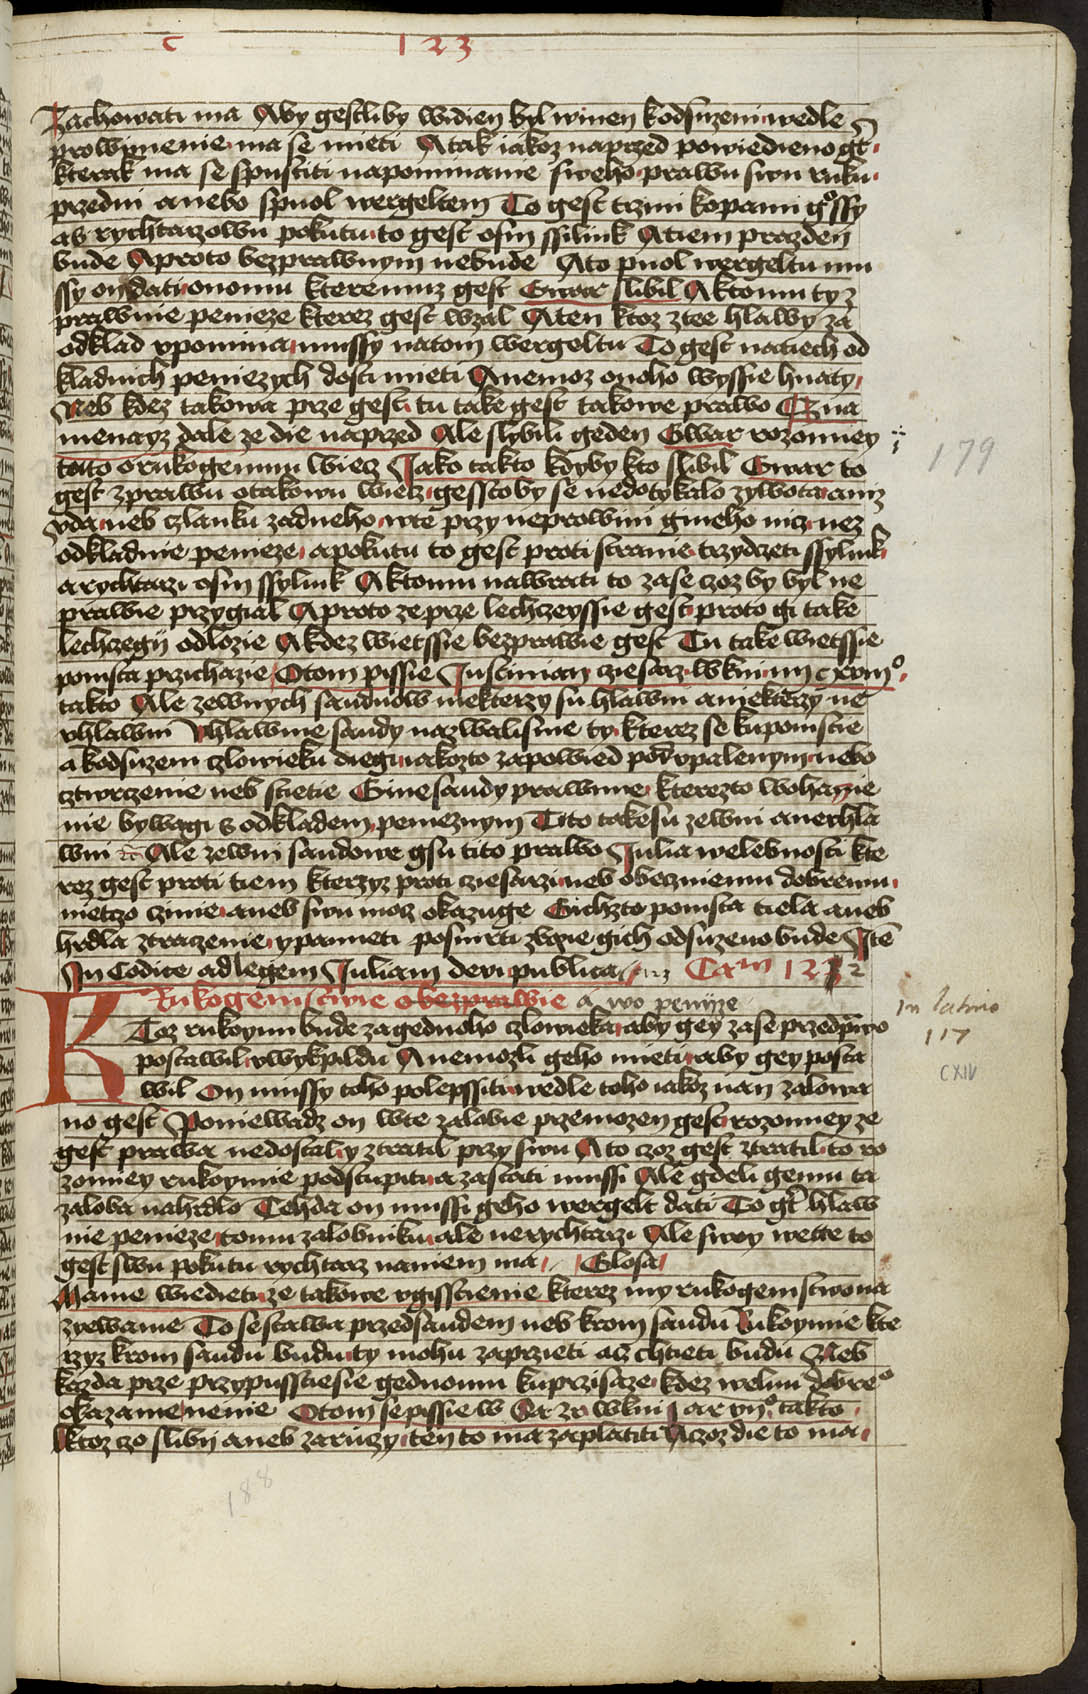 c 123
Zachowati ma Aby gestliby widien byl winen k odsuzeni wedle
prowinenie ma se mieti A tak iakoz naprzed powiedieno gt
kterak ma se spustiti napominanie sweho prawu swu ruku
przedni anebo s puol wergeltem To gest trzmi kopami gssy
a s rychtarzowu pokutu to gest osm ssilink A tiem prazden
bude A proto bezprawnym nebude A to puol wergeltu mu
ssy on dati onomu kteremuz gest Gwar slibil A k tomu ty z
prawnie penieze kterez gest wzal A ten ktoz z tee hlawy za
odklad vpomina mussy na tom wergeltu To gest na tiech od
kladnich peniezych dosti mieti A nemoz onoho wyssie hnaty
Neb kdez takowa prze gest tu take gest takowe prawo Czna
menayz dale ze die naprzed Ale slybili geden Gwar rozomiey
toto o rukogemni wiecz Jako takto kdyby kto slibil Gwar to
gest z prawu o takowu wiecz gesstoby se nedotykalo zywota anz
vda neb czlanku zadneho w te przy neprowini gineho nicz nez
odkladnie penieze a pokutu to gest proti stranie trzydczeti ssylink
a rychtarzi osm ssylink A k tomu nawrati to zase czoz by byl ne
prawie przygial A proto ze prze lechczeyssie gest proto gi take
lechczegij odlozie A kdez wietssie bezprawie gest Tu take wietssie
pomsta przichazie O tom pissie Justinian cziesarz w kni iiii c xviii
takto Ale zewnych sauduow niekterzy su hlawni a niekterzy ne
vhlawni Vhlawnie saudy nazwali sme ty kterez se ku pomstie
a k odsuzeni czlowieku diegi iakozto zapowied por vpalenym nebo
cztwrczenie neb stietie Gine saudy prawnie kterezto w ohazie
nie bywagi s odkladem penieznym Tito take su zewni a nevhla
wni Ale zewni saudowe gsu tito prawo Julia welebnosti kte
rez gest proti tiem kterzyz proti cziesarzi neb obeczniemu dobremu
nietczo czinie aneb swu mocz okazuge Gichzto pomsta tiela aneb
hrdla ztraczenie y pamieti po smrti zbozie gich odsuzeno bude Ite
In Codice ad legem Juliam de vi publica Cam 122 2
Rukogemstwie o bezprawie a wo penijze
KToz rukoymi bude za gednoho czlowieka aby gey zase przed prawo
postawil w wykpildu A nemozli geho mieti aby gey posta
wil On mussy toho polepssiti wedle toho iakoz nan zalowa
no gest Poniewadz on w te zalobie przemozen gest rozomiey ze
gest prawa nedostal y ztratil przy swu A to czoz gest ztratil to ro
zomiey rukoymie podstupitu a zastati mussi Ale gdeli gemu ta
zaloba na hrdlo Tehda on mussi geho wergelt dati To gt hlaw
nie penieze tomu zalobniku ale ne rychtarzi Ale swoy wette to
gest swu pokutu rychtarz na niem ma Glosa
Mame wiedieti ze takowe vgisstienie kterez my rukogemstwo na
zyewame To se stawa przed saudem neb krom saudu Rukoymie kte
rzyz krom saudu budu ty mohu zaprzieti acz chtieti budu Neb
kazda prze przypusstie sie gednomu ku przisaze kdez welmi dobreo
okazanie nenie O tom se pissie w takto
Ktoz czo slibij aneb zaruczy ten to ma zaplatiti A czoz die to ma
179
In latino
117
CXIV
188